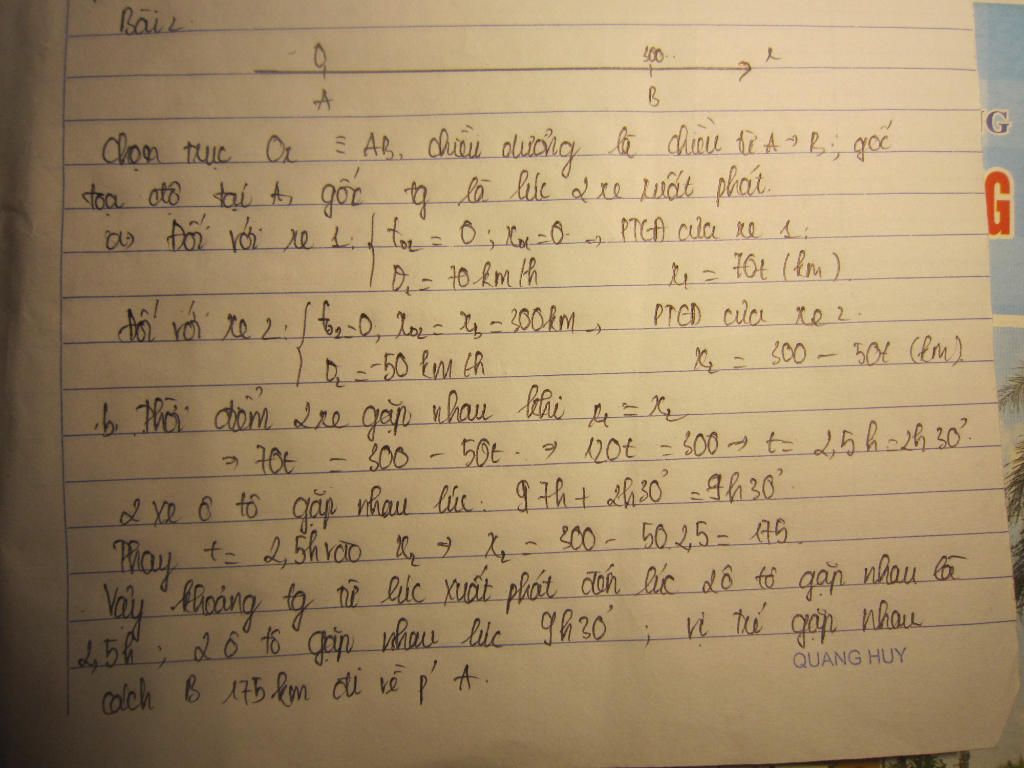 Bài 2
O 300 x
A B
Chọn trục Ox ≡ AB, chiều dương là chiều từ A → B; gốc
tọa độ tại A, gốc tg là lúc 2 xe xuất phát.
a, Đối với xe 1: { t₀₁ = 0 ; x₀₁ = 0 → PTCĐ của xe 1:
v₁ = 70 km/h x₁ = 70t (km)
Đối với xe 2: { t₀₂ = 0, x₀₂ = x_B = 300km → PTCĐ của xe 2.
v₂ = -50 km/h x₂ = 300 - 50t (km)
b, Thời điểm 2 xe gặp nhau khi x₁ = x₂
⇒ 70t = 300 - 50t ⇒ 120t = 300 → t = 2,5h = 2h30'
2 xe ô tô gặp nhau lúc: 9 7h + 2h30' = 9h30'
Thay t = 2,5h vào x₂ → x₂ = 300 - 50.2,5 = 175
Vậy khoảng tg từ lúc xuất phát đến lúc 2 ô tô gặp nhau là
2,5h ; 2 ô tô gặp nhau lúc 9h30' ; vị trí gặp nhau
cách B 175 km đi về p' A.
QUANG HUY
NG
G